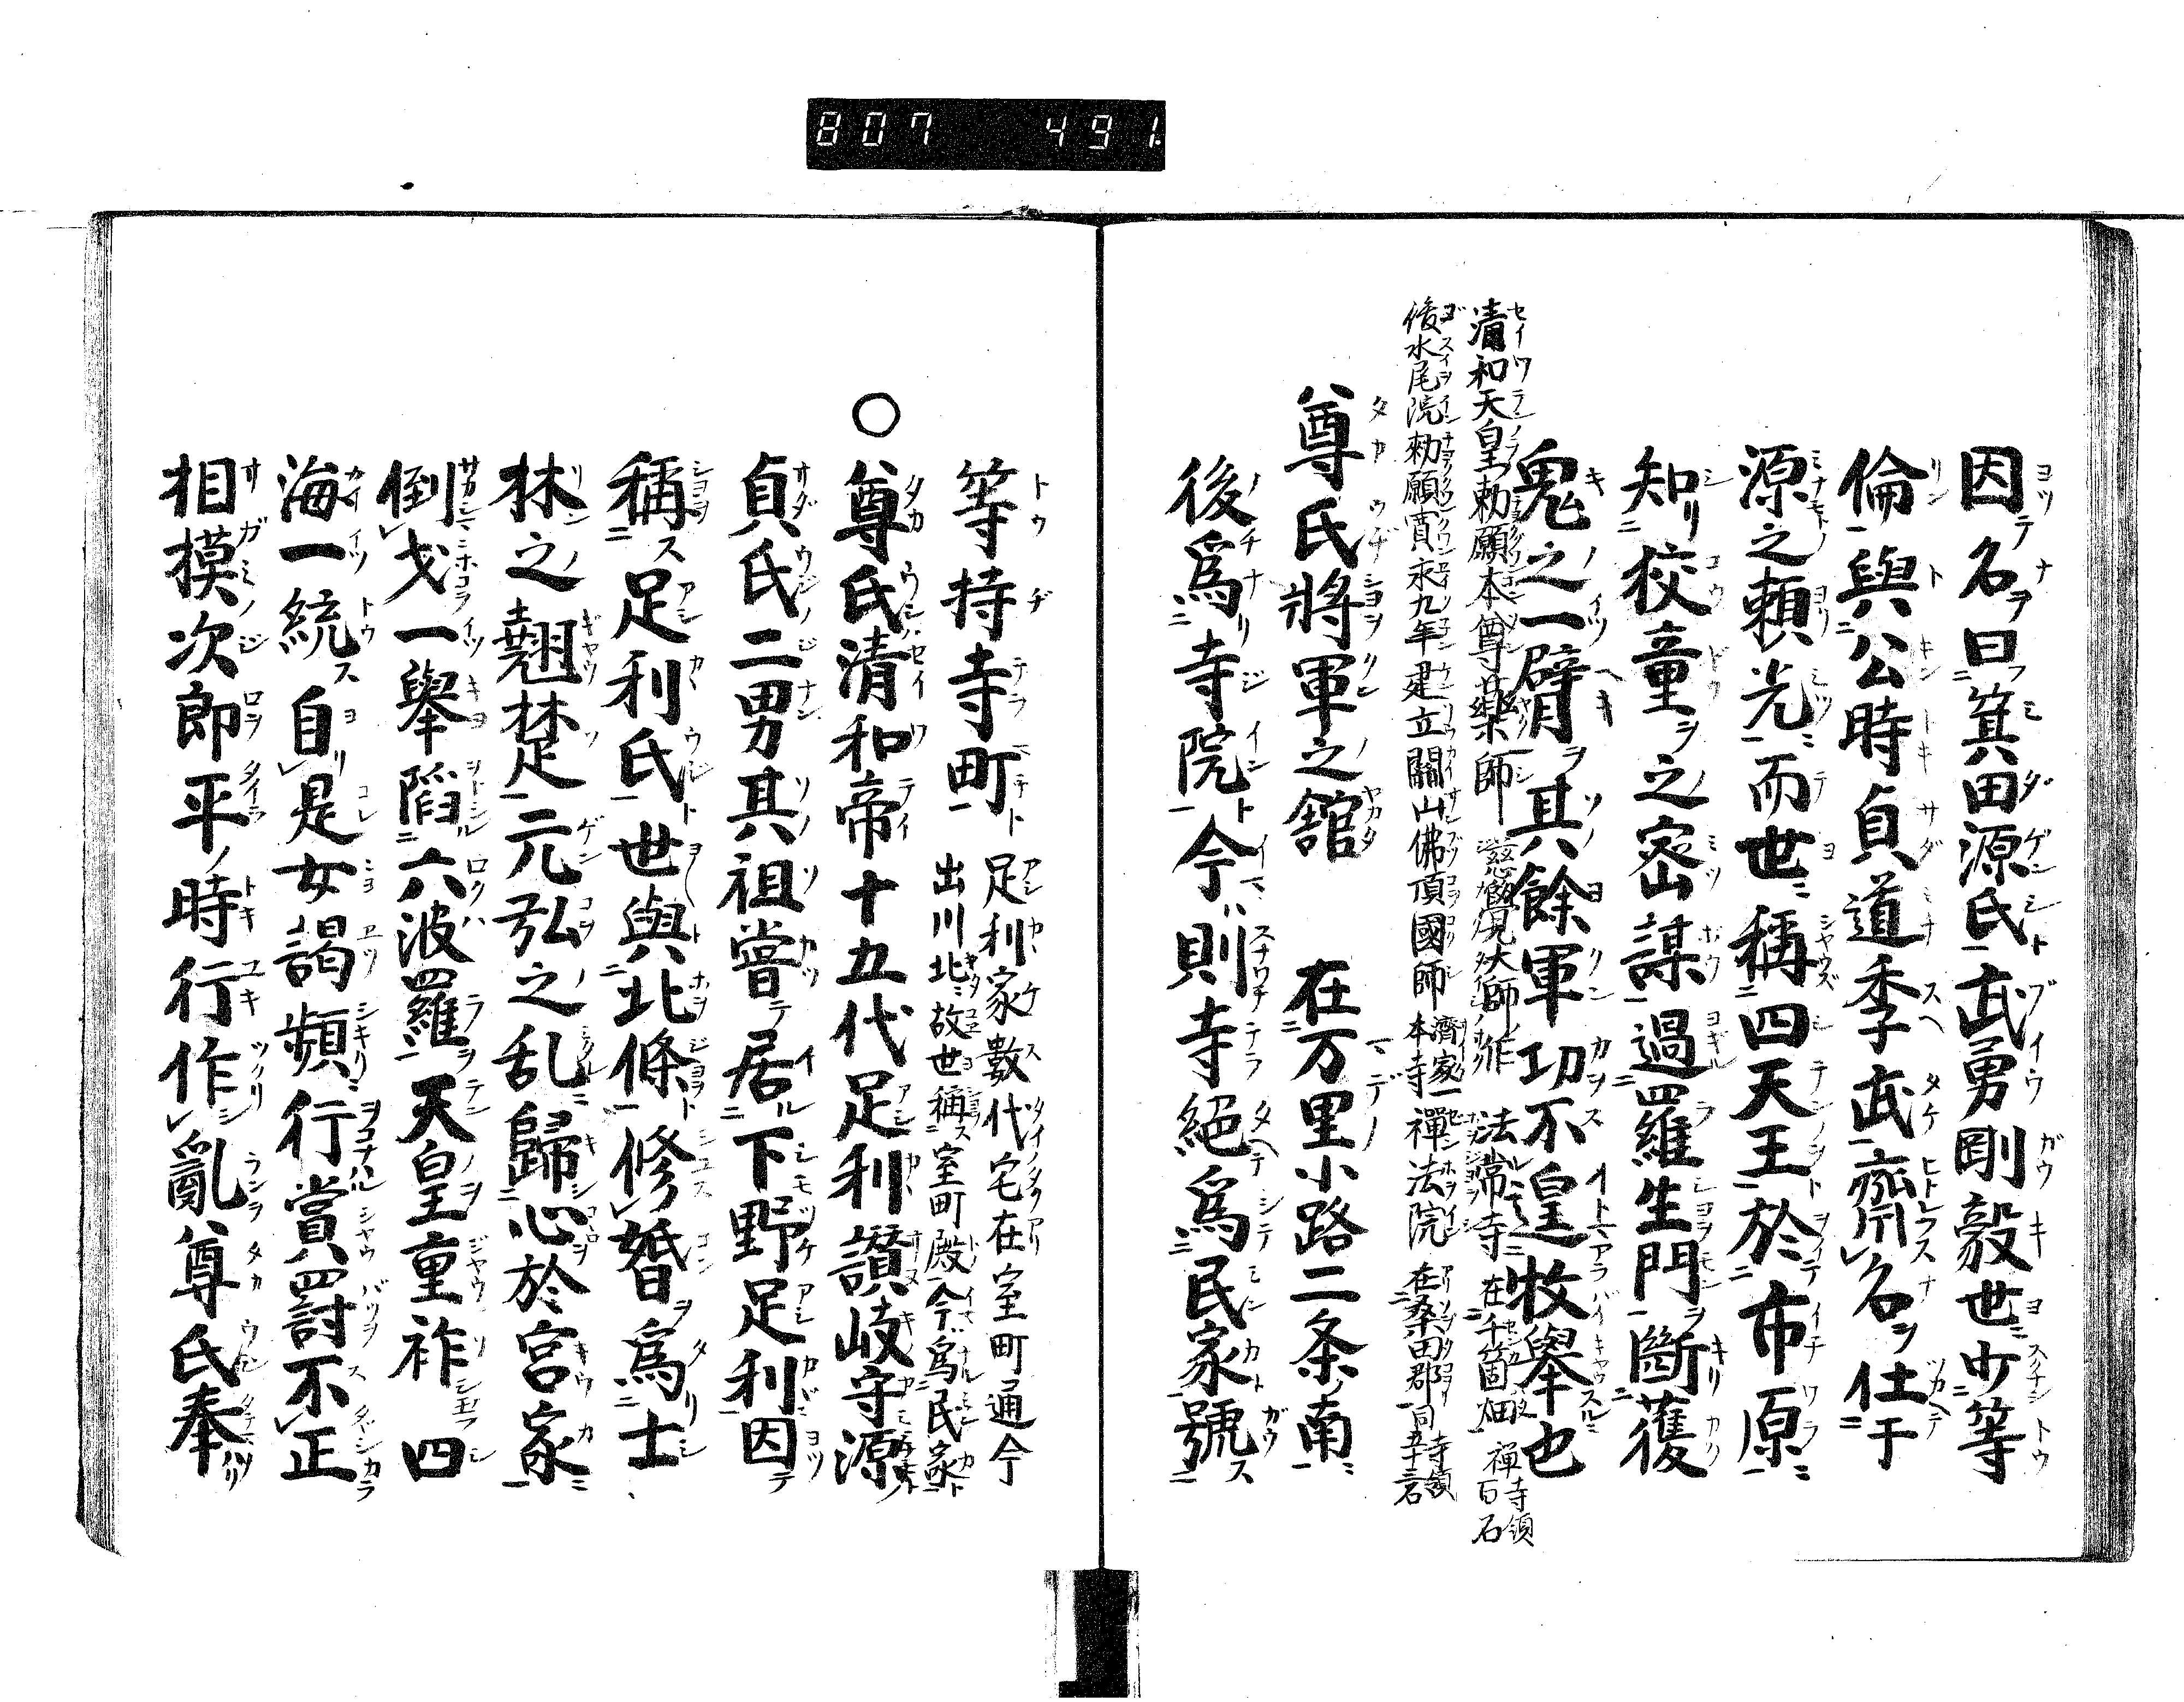 807 491
因名曰箕田源氏武勇剛毅世少等
倫與公時貞道季武齊名仕于
源之賴光而世稱四天王於市原
知狡童之密謀過羅生門斷獲
鬼之一臂其餘軍功不遑枚舉也
清和天皇勅願本尊薬師 慈覺大師作 法常寺 在千箇畑 禅寺領百石
後水尾院勅願寛永九年建立開山佛頂國師 濟家本寺 禪法院 在桑田郡 寺領同五十三石
尊氏將軍之舘 在万里小路二条南
後爲寺院今則寺絕爲民家號
等持寺町 足利家數代宅在室町通今
出川北故世稱室町殿今爲民家
○尊氏清和帝十五代足利讃岐守源
貞氏二男其祖嘗居下野足利因
稱足利氏世與北條修婚爲士
林之翹楚元弘之乱歸心於宮家
倒戈一舉陷六波羅天皇重祚四
海一統自是女謁頻行賞罰不正
相摸次郎平時行作亂尊氏奉